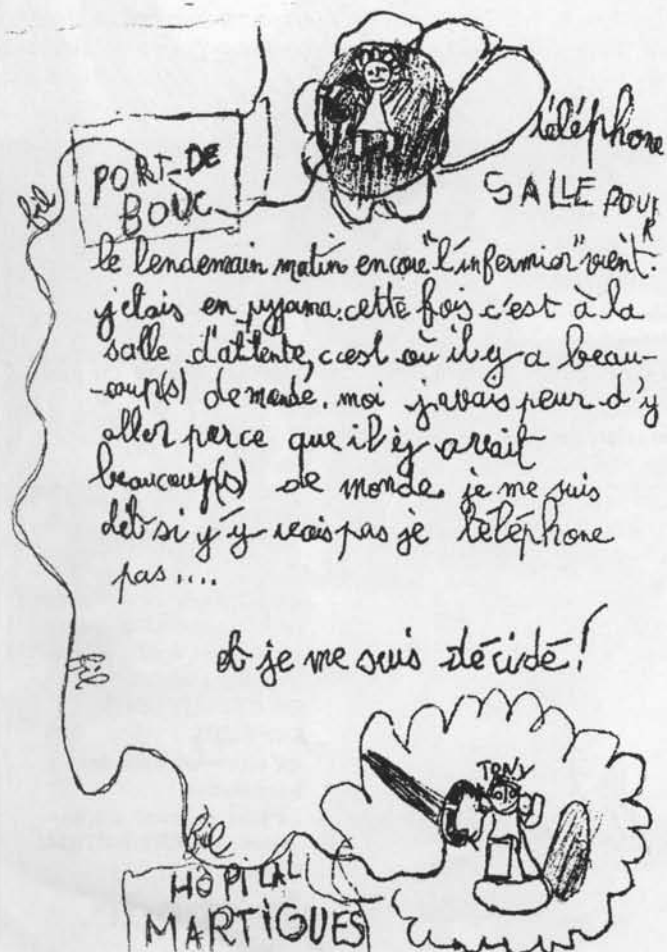 PORT-DE
BOUC
téléphone
SALLE POUR
fil
le lendemain matin encore "l'infermier" vient.
j'étais en pyjama. cette fois c'est à la
salle d'attente, c'est où il y a beau-
-coup(s) de monde. moi j'avais peur d'y
aller parce que il y avait
beaucoup(s) de monde. je me suis
dit si j'y vais pas je téléphone
pas....
et je me suis décidé!
fil
TONY
fil
HOPITAL
MARTIGUES